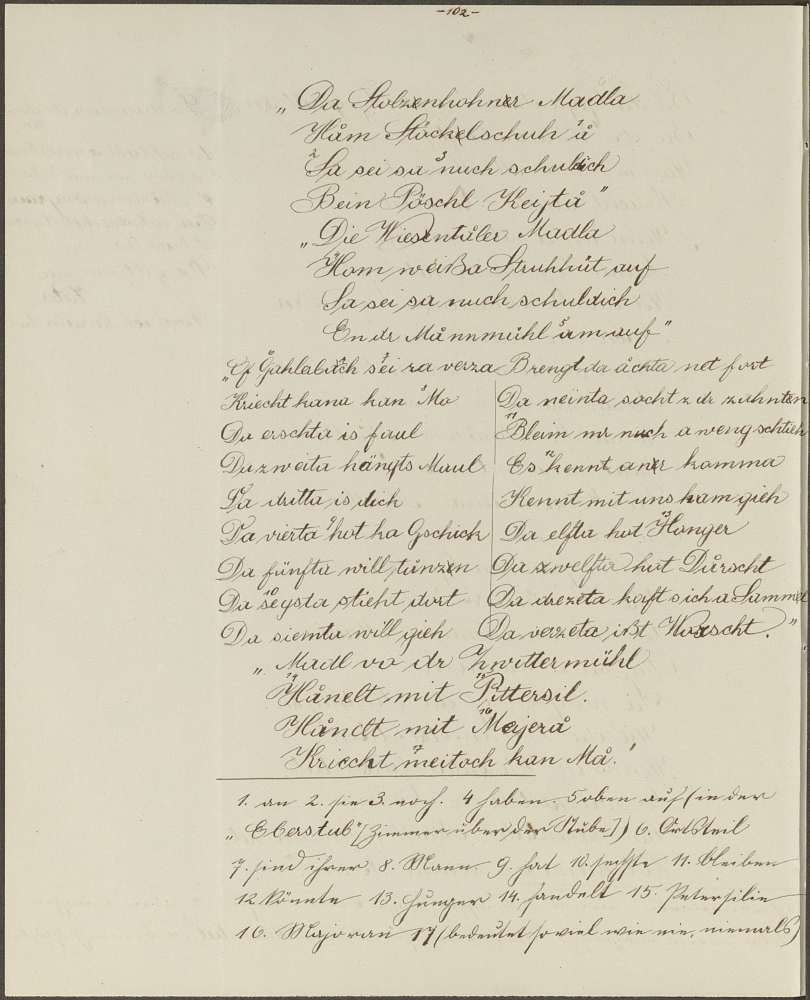 -102-
„Da Stolzenhohner Madla
Håm Stöckelschuh ¹å
²Sa sei sa ³nuch schuldich
Bein Pöschl Keijtå"
„Die Wiesentåler Madla
⁴Hom weißa Struhhüt auf
Sa sei sa nuch schuldich
En dr Månnmühl ⁵åm auf"
„Of ⁶Gahlabåch ⁷sei ra verza
Kriecht kana kan ⁸Mo
Da erschta is faul
Da zweita hängts Maul
Da dritta is dick
Da vierta ⁹hot ka Gschick
Da fünfta will tånzen
Da ¹⁰seysta stieht dort
Da siemta will gieh
Brengt da åchta net fort
Da neinta socht z dr zahnten
¹¹Bleim mr nuch a weng schtieh
Es ¹²kennt aner komma
Kennt mit uns ham gieh
Da elfta hot ¹³Honger
Da zwelfta hot Dårscht
Da drezeta kaft sich a Sammel
Da verzeta ißt Worscht."
„Madl va dr Zwittermühl
¹⁴Hånelt mit ¹⁵Pittersil.
Håndlt mit ¹⁶Mejerå
Kriecht ¹⁷meitoch kan Må.'
1. an 2. sie 3. noch. 4 haben. 5 oben auf (in der
„Eberstub" [Zimmer über der Stube]) 6. Ortsteil
7. sind ihrer 8. Mann. 9. hat 10. sechste 11. bleiben
12 könnte 13. Hunger 14. handelt 15. Petersilie
16. Majoran 17 (bedeutet soviel wie nie, niemals)